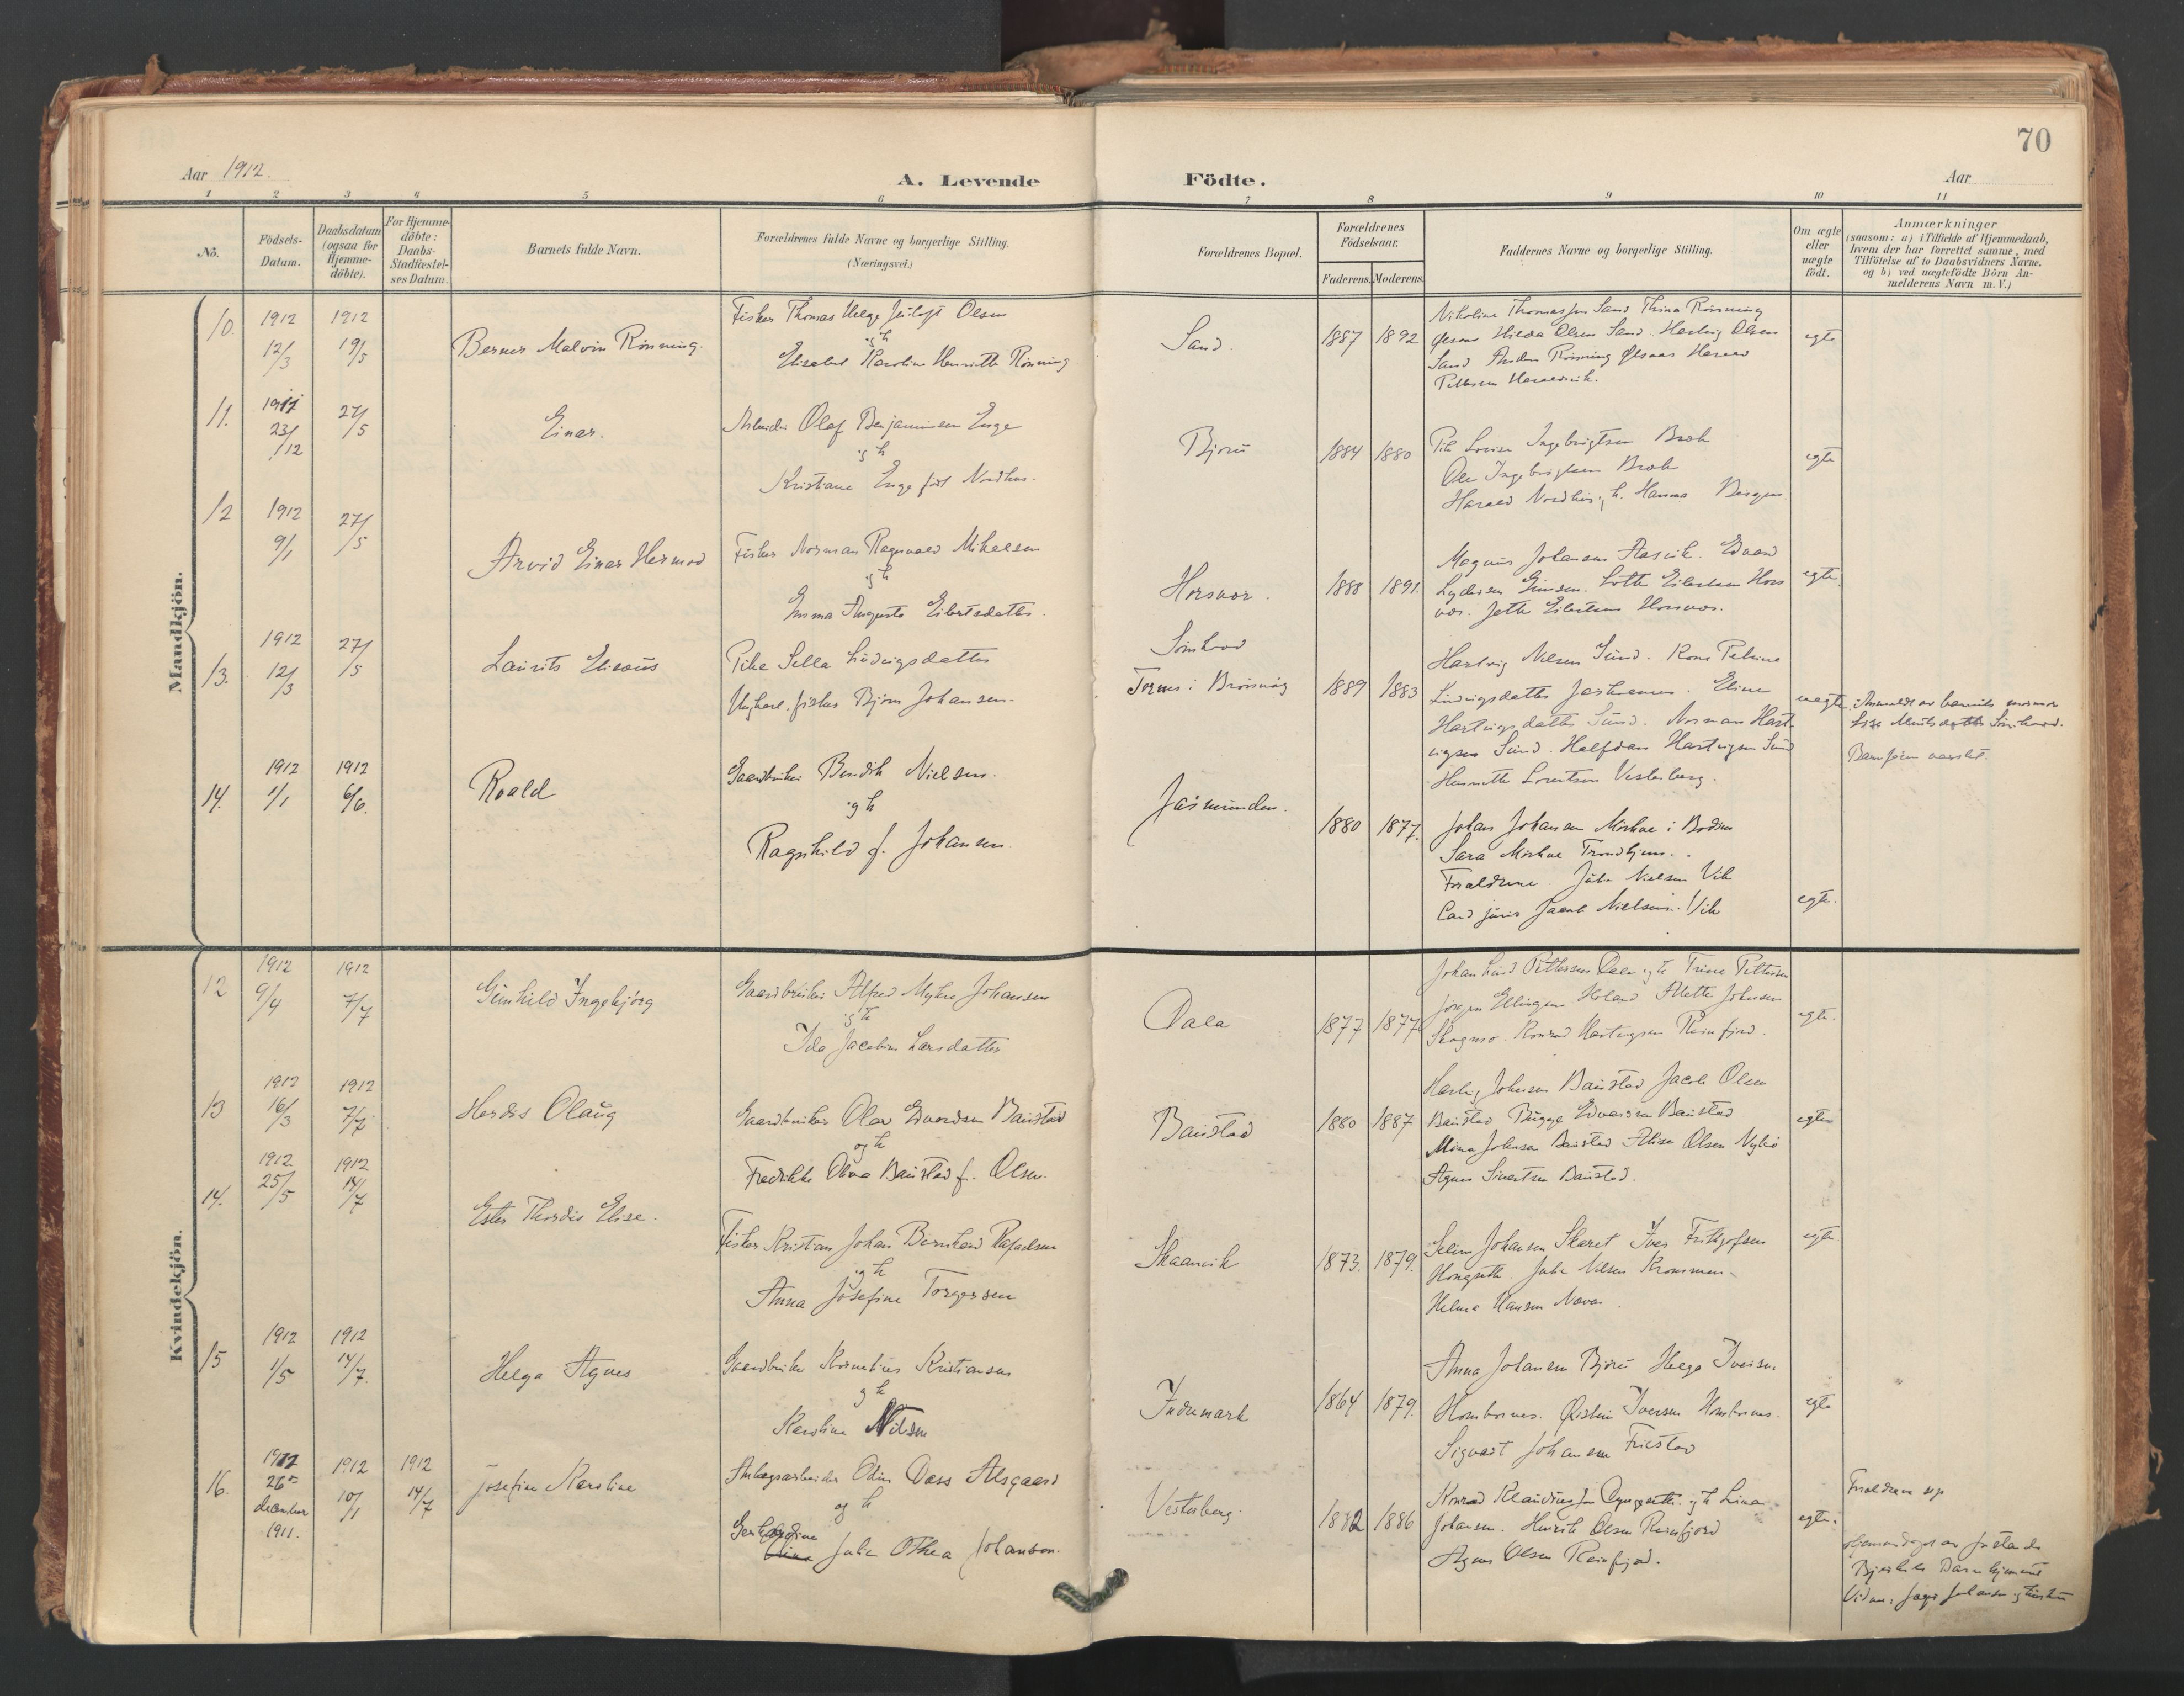 70
Aar 1912.
A. Levende Födte.
Aar
1 2 3 4 5 6 7 8 9 10 11
No.
Födsels-Datum.
Daabsdatum (ogsaa for Hjemme-döbte).
For Hjemme-döbte: Daabs-Stadfæstel-ses Datum.
Barnets fulde Navn.
Forældrenes fulde Navne og borgerlige Stilling. (Næringsvei.)
Forældrenes Bopæl.
Forældrenes Födselsaar.
Faderens. Moderens.
Faddernes Navne og borgerlige Stilling.
Om ægte eller uægte födt.
Anmærkninger
(saasom: a) i Tilfælde af Hjemmedaab, hvem der har forrettet samme, med Tilföielse af to Daabsvidners Navne, og b) ved uægtefödte Börn An-melderens Navn m. V.)
Mandkjön.
10. 1912 12/3 1912 19/5
Berner Malvin Rönning.
Fisker Thomas Helge Olsen
og h
Elisabet Karoline Henriette Rönning
Sand.
1887 1892
Nikoline Thomassen Sand Trina Rönning
Hilda Olsen Sand. Hartvig Olsen
Sand Anders Rönning Harald
Pettersen
egte
11. 1911 23/12 27/5
Einar.
Arbeider Olaf Benjaminsen Enge
og h
Kristiane Enge födt Nordhus.
Björü
1884 1880
Pike Lovise Ingebrigtsen Brok
Ole Ingebrigtsen Brok
Harald Nordhus og h. Hanna Bergen.
egte
12 1912 9/1 27/5
Arvid Einar Hermod
Fisker Norman Ragnvald Mikelsen
og h
Emma Augusta Eilertsdatter.
Horsvær.
1888 1891.
Magnus Johansen Aasvik. Edvard
Lydersen Lotte Eilertsen Hors
vær. Jette Eilertsen Horsvær.
egte.
13. 1912 12/3 27/5
Laurits Eliseüs
Pike Sella Lüdvigsdatter
Ungkarl, fisker Björn Johansen.
Sömhovd
Tornes i Brönnöy
1889 1883
Hartvig Nilsen Sünd. Kone Petrine
Ludvigsdatter Eline
Hartvigsdatter Sünd. Norman Hart
vigsen Sünd. Halfdan Hartvigsen Sünd
Henriette Lorentsen Vesterberg.
uegte.
Anmeldt av barnets mormor
Lise
Barnefaren varslet.
14. 1912 1/1 1912 6/6.
Roald
Gaardbruker Bendik Nielsen.
og h
Ragnhild f. Johansen.
Jasmunden.
1880 1877.
Johan Johansen Mörkve i Bodin
Sara Mörkve Trondhjem.
Foraldrene. Julie Nielsen Vik
Cand juris Jacob Nielsen. Vik
egte.
Kvindekjön.
12 1912 9/4 1912 7/7
Günhild Ingebjörg
Gaardbruker Alfred Myhre Johansen
og h
Ida Jacobine Larsdatter
Dala
1877 1877
Johan Lind Pettersen Dala og h Trine Pettersen
Jörgen Ellingsen Holand Alette Johnsen
Konrad Hartvigsen Reinfjord.
egte.
13 1912 16/3 1912 7/7
Herdis Olaüg
Gaardbruker Olav Edvardsen Baüstad
og h
Fredrikke Olava Baüstad f. Olsen.
Baustad
1880 1887
Hartvig Johnsen Baüstad Jacob Olsen
Baüstad Bügge Edvardsen Baustad
Mina Johnsen Baustad Elise Olsen
Agnes Sivertsen Baustad.
egte
14. 1912 25/5 1912 14/7
Ester Thordis Elise.
Fisker Kristian Johan Bernhard Rafaelsen
og h
Anna Josefine Torgersen
Skaanvik
1873. 1879.
Selina Johansen Skaret Iver Frithjofsen
Hongseth. Julie Nilsen
Helma Hansen
egte.
15 1912 1/5 1912 14/7.
Helga Agnes
Gaardbruker Kornelius Kristiansen
og h
Karoline Nilsen
Indremark
1864 1879.
Anna Johansen Björü Helga Iversen
Hombornes. Iversen Hombornes.
Sigvart Johansen
egte
16. 1912 26de december 1911. 1912 10/1 1912 14/7
Josefine Karoline
Anlægsarbeider Odin Dass Alsgaard
og h
Gerhardine
Julie Othea Johansen.
Vesterberg
1882 1886
Konrad Klaüdiussen og h Lina
Johansen. Henrik Olsen Reinfjord
Agnes Olsen Reinfjord.
egte.
Foraldrene